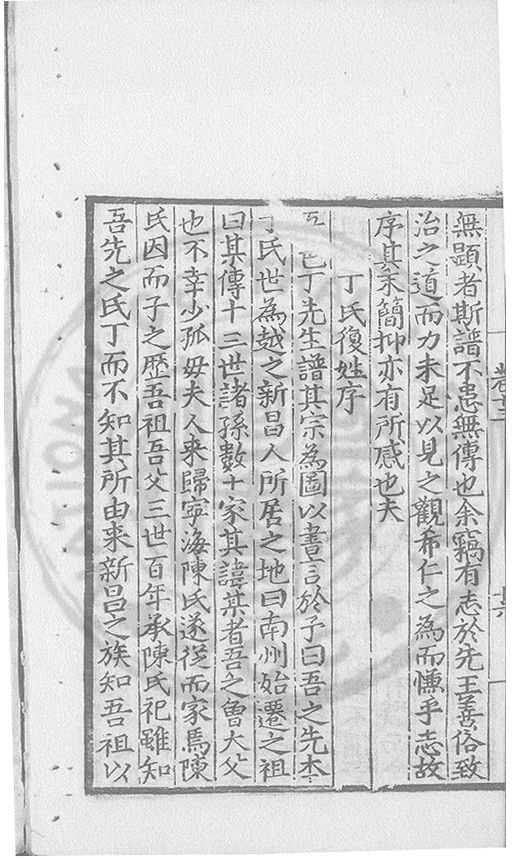 卷十三
無顯者斯譜不患無傳也余竊有志於先王善俗致
治之道而力未足以見之觀希仁之為而慊乎志故
序其末簡抑亦有所感也夫
丁氏復姓序
邑丁先生譜其宗為圖以書言於予曰吾之先本
丁氏世為越之新昌人所居之地曰南州始遷之祖
曰某傳十三世諸孫數十家其諱某者吾之曾大父
也不幸少孤毋夫人來歸寧海陳氏遂從而家焉陳
氏因而子之歷吾祖吾父三世百年承陳氏祀雖知
吾先之氏丁而不知其所由來新昌之族知吾祖以